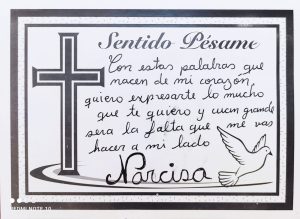 Sentido Pésame
Con estas palabras que
nacen de mi corazón,
quiero expresarte lo mucho
que te quiero y cuan grande
sera la falta que me vas
hacer a mi lado
Narcisa
REDMI NOTE 10